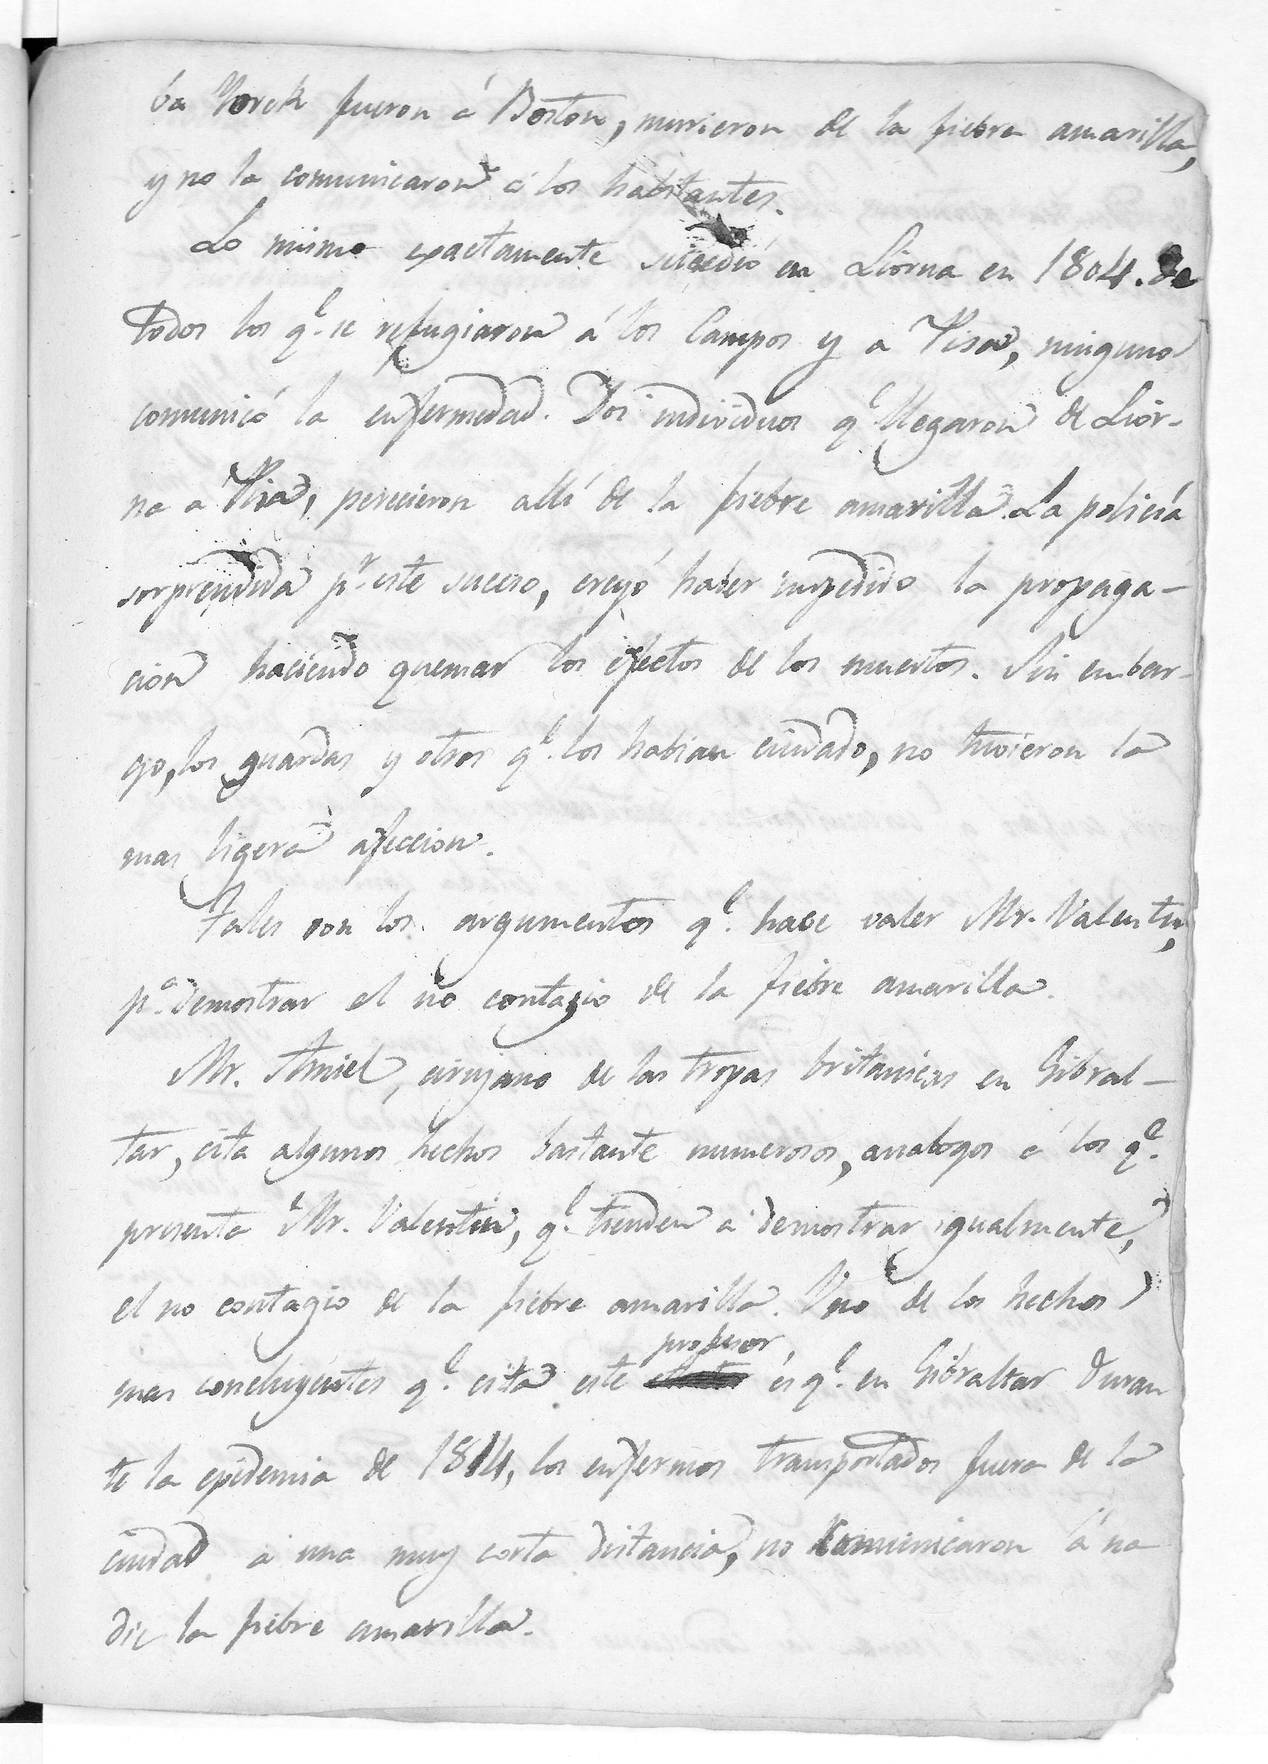 ba Yorck fueron á Boston, murieron de la fiebre amarilla,
y no la comunicaron á los habitantes.
Lo mismo exactamente sucedió en Liorna en 1804. De
todos los q.e se refugiaron á los Campos y a Pisa, ninguno
comunicó la enfermedad. Dos individuos q.e llegaron de Lior-
na a Pisa, perecieron allí de la fiebre amarilla. La policía
sorprendida p.r este suceso, creyó haber impedido la propaga-
cion haciendo quemar los efectos de los muertos. Sin embar-
go, los guardas y otros q.e los habian cuidado, no tuvieron la
mas ligera afeccion.
Tales son los argumentos q.e hace valer Mr. Valentin,
p.a demostrar el no contagio de la fiebre amarilla.
Mr. Amiel, cirujano de las tropas britanicas en Gibral-
tar, cita algunos hechos bastante numerosos, analogos á los q.e
presenta Mr. Valentin, q.e tienden a demostrar igualmente,
el no contagio de la fiebre amarilla. Uno de los hechos
mas concluyentes q.e cita este profesor, es q.e en Gibraltar duran
te la epidemia de 1814, los enfermos transportados fuera de la
ciudad a una muy corta distancia, no comunicaron á na
die la fiebre amarilla.